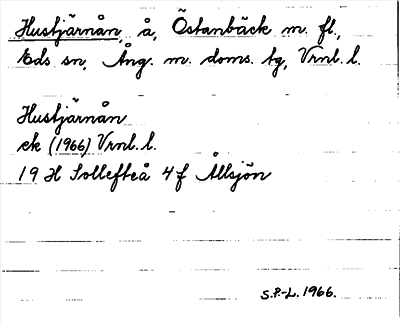 Hustjärnån, å, Östanbäck m. fl.,
Eds sn, Ång. m. doms. tg, Vrnl. l.
Hustjärnån
ek (1966) Vrnl. l.
19 H Sollefteå 4 f Ållsjön
S.P.-L. 1966.